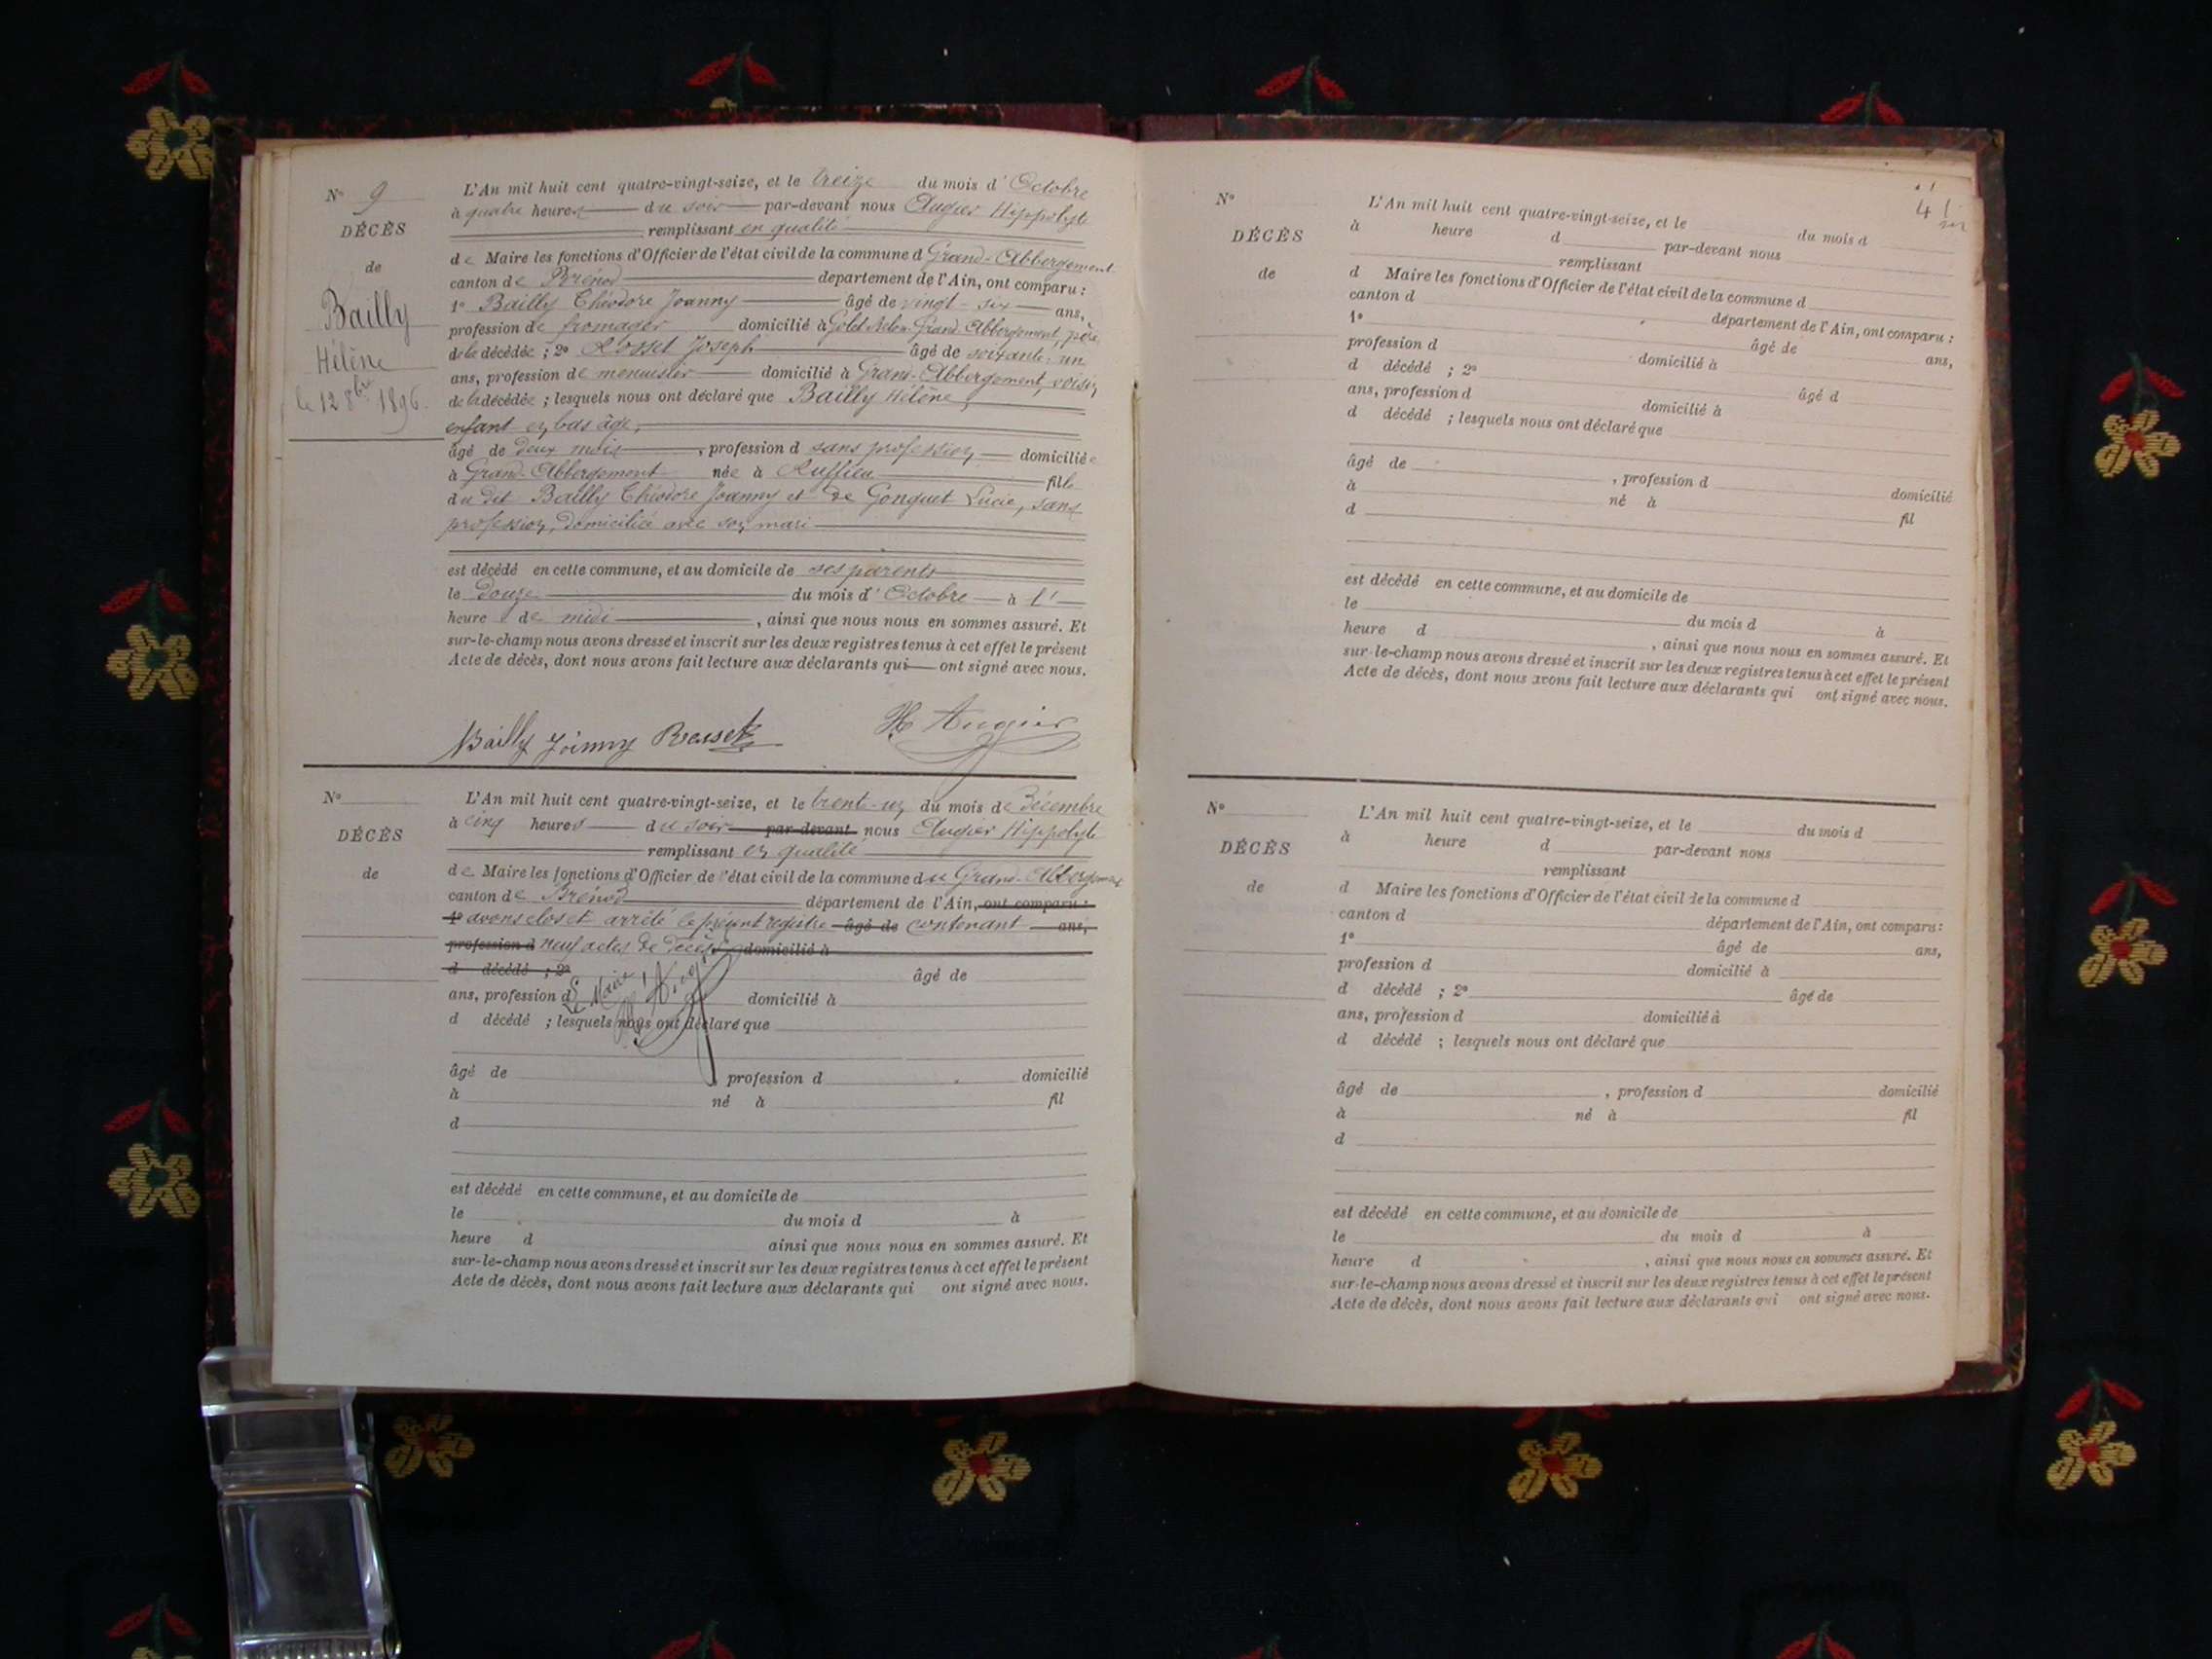 N° 9
DÉCÈS
de
Bailly
Hélène
le 12 8bre 1896.
L'An mil huit cent quatre-vingt-seize, et le treize du mois d' Octobre
à quatre heures du soir par-devant nous Augier Hippolyte
remplissant en qualité
de Maire les fonctions d'Officier de l'état civil de la commune d Grand-Abbergement
canton de Brénod département de l'Ain, ont comparu :
1° Bailly Théodore Joanny âgé de vingt-six ans,
profession de fromager domicilié à Grand-Abbergement, père
de la décédée ; 2° Rosset Joseph âgé de soixante-un
ans, profession de menuisier domicilié à Grand-Abbergement, voisin
de la décédée ; lesquels nous ont déclaré que Bailly Hélène,
enfant en bas âge,
âgé de deux mois, profession d sans profession domiciliée
à Grand-Abbergement née à Ruffieu fille
du dit Bailly Théodore Joanny et de Gonguet Lucie, sans
profession, domiciliée avec son mari
est décédé en cette commune, et au domicile de ses parents
le douze du mois d' Octobre à l'
heure de midi, ainsi que nous nous en sommes assuré. Et
sur-le-champ nous avons dressé et inscrit sur les deux registres tenus à cet effet le présent
Acte de décès, dont nous avons fait lecture aux déclarants qui ont signé avec nous.
Bailly Joanny Rosset H Augier
N°
DÉCÈS
de
L'An mil huit cent quatre-vingt-seize, et le trente-un du mois de Décembre
à cinq heures du soir par-devant nous Augier Hippolyte
remplissant en qualité
de Maire les fonctions d'Officier de l'état civil de la commune du Grand-Abbergement
canton de Brénod département de l'Ain, ont comparu :
1° avons clos et arrêté le présent registre âgé de contenant ans,
profession d neuf actes de décès domicilié à
d décédé ; 2° âgé de
ans, profession d Le Maire domicilié à
d décédé ; lesquels nous ont déclaré que
âgé de , profession d domicilié
à né à fil
d
est décédé en cette commune, et au domicile de
le du mois d à
heure d ainsi que nous nous en sommes assuré. Et
sur-le-champ nous avons dressé et inscrit sur les deux registres tenus à cet effet le présent
Acte de décès, dont nous avons fait lecture aux déclarants qui ont signé avec nous.
41
N°
DÉCÈS
de
L'An mil huit cent quatre-vingt-seize, et le du mois d
à heure d par-devant nous
remplissant
d Maire les fonctions d'Officier de l'état civil de la commune d
canton d département de l'Ain, ont comparu :
1° âgé de ans,
profession d domicilié à
d décédé ; 2° âgé d
ans, profession d domicilié à
d décédé ; lesquels nous ont déclaré que
âgé de , profession d domicilié
à né à fil
d
est décédé en cette commune, et au domicile de
le du mois d à
heure d , ainsi que nous nous en sommes assuré. Et
sur-le-champ nous avons dressé et inscrit sur les deux registres tenus à cet effet le présent
Acte de décès, dont nous avons fait lecture aux déclarants qui ont signé avec nous.
N°
DÉCÈS
de
L'An mil huit cent quatre-vingt-seize, et le du mois d
à heure d par-devant nous
remplissant
d Maire les fonctions d'Officier de l'état civil de la commune d
canton d département de l'Ain, ont comparu :
1° âgé de ans,
profession d domicilié à
d décédé ; 2° âgé de
ans, profession d domicilié à
d décédé ; lesquels nous ont déclaré que
âgé de , profession d domicilié
à né à fil
d
est décédé en cette commune, et au domicile de
le du mois d à
heure d , ainsi que nous nous en sommes assuré. Et
sur-le-champ nous avons dressé et inscrit sur les deux registres tenus à cet effet le présent
Acte de décès, dont nous avons fait lecture aux déclarants qui ont signé avec nous.